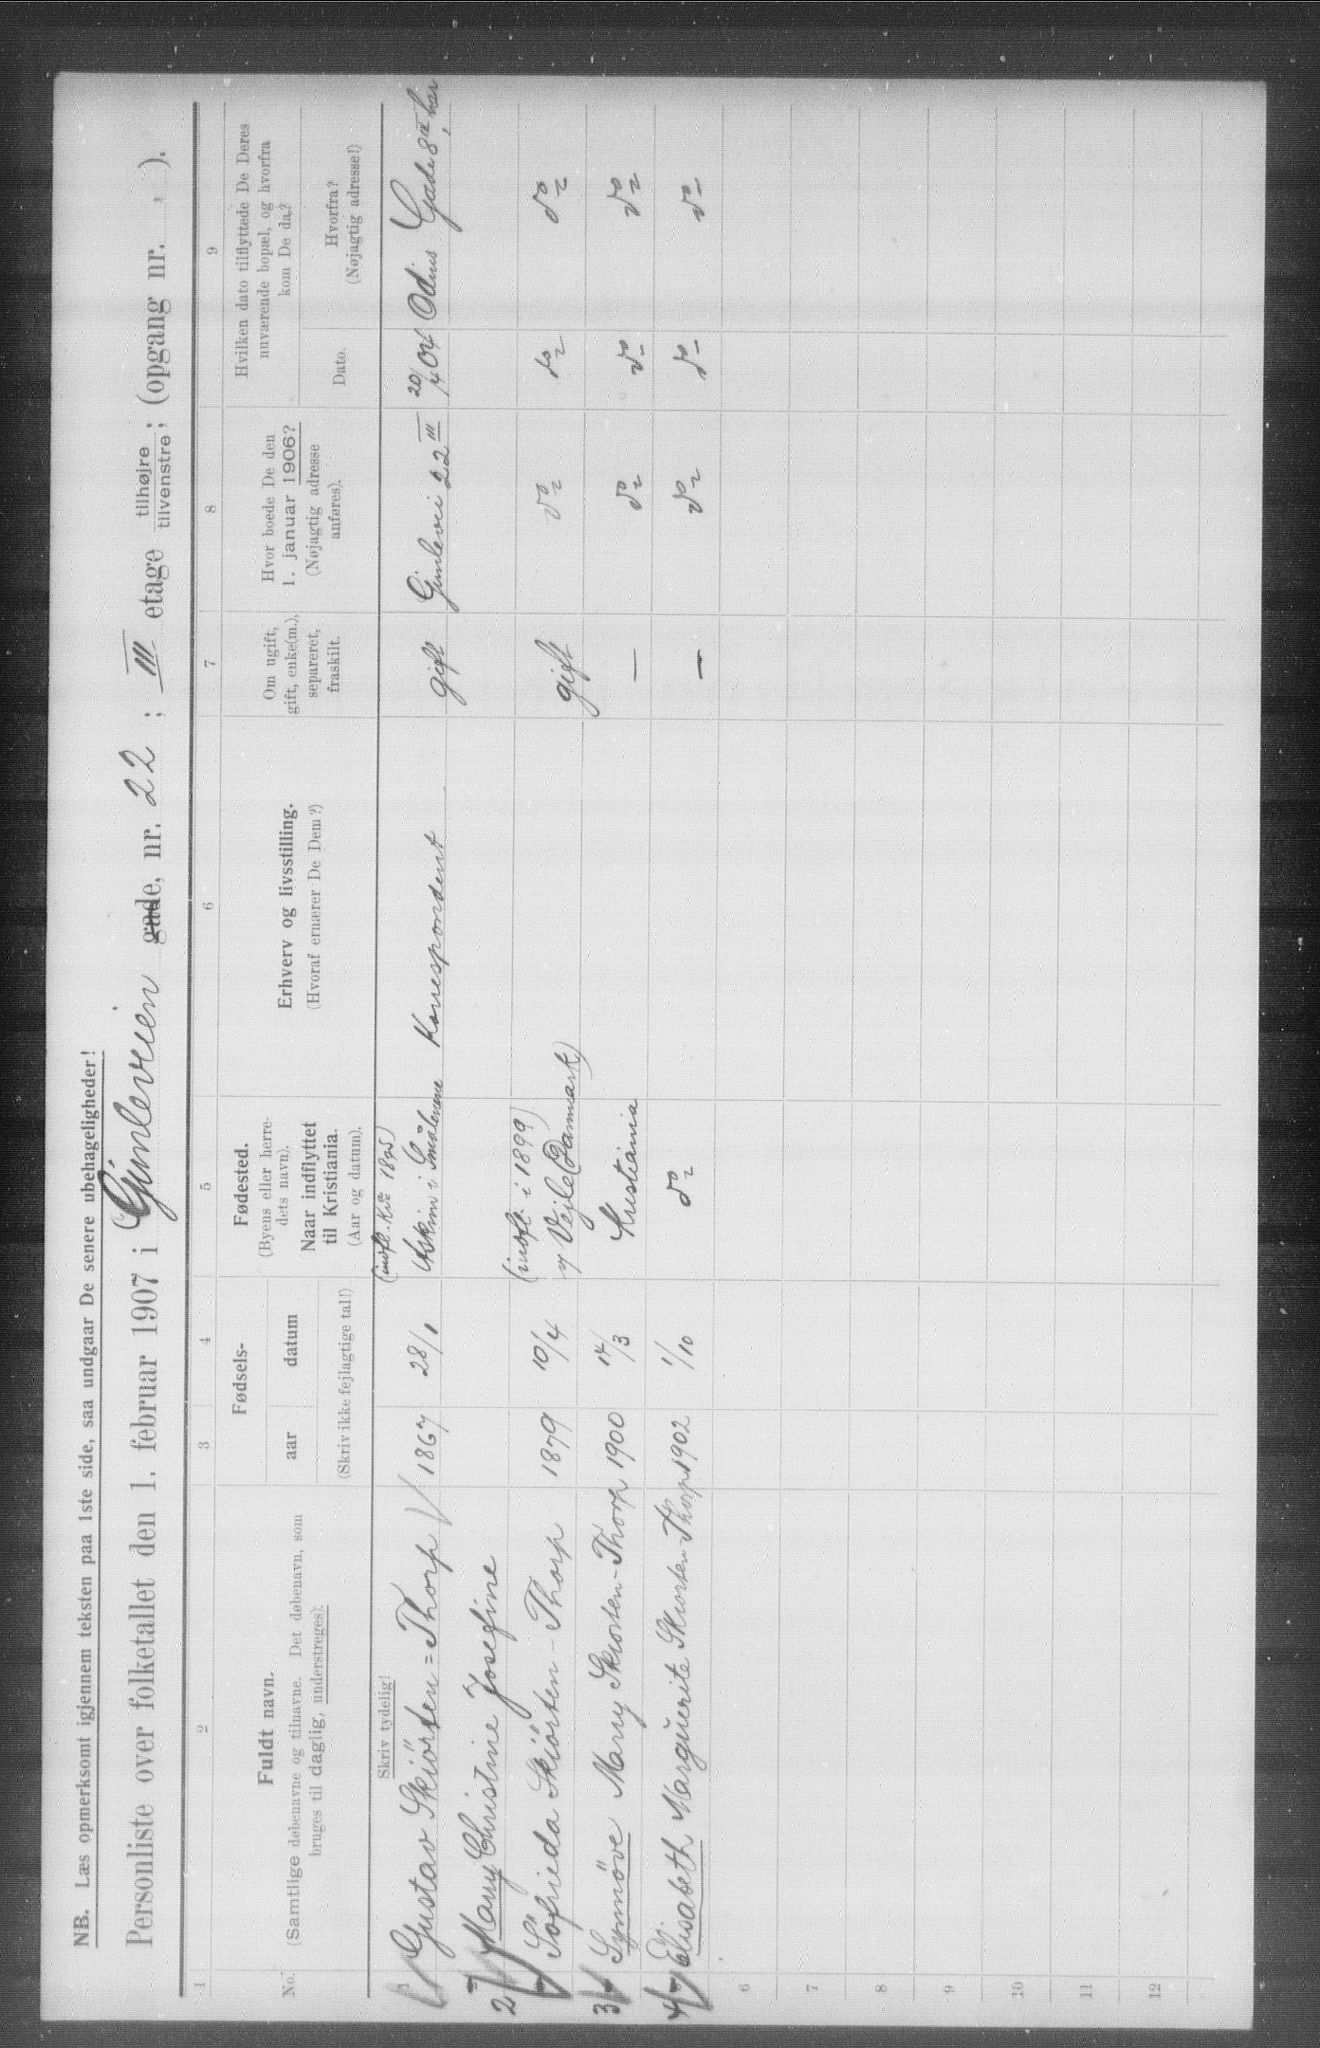 NB. Læs opmerksomt igjennem teksten paa 1ste side, saa undgaar De senere ubehageligheder!
Personliste over folketallet den 1. februar 1907 i Gimleveien gade, nr. 22; III etage tilhøjre tilvenstre; (opgang nr. ).
1 2 3 4 5 6 7 8 9
No.
Fuldt navn.
(Samtlige døbenavne og tilnavne. Det døbenavn, som
bruges til daglig, understreges).
Fødsels-
aar datum
(Skriv ikke fejlagtige tal!)
Fødested.
(Byens eller herre-
dets navn).
Naar indflyttet
til Kristiania.
(Aar og datum).
Erhverv og livsstilling.
(Hvoraf ernærer De Dem?)
Om ugift,
gift, enke(m.),
separeret,
fraskilt.
Hvor boede De den
1. januar 1906?
(Nøjagtig adresse
anføres).
Hvilken dato tilflyttede De Deres
nuværende bopæl, og hvorfra
kom De da?
Dato.
Hvorfra?
(Nøjagtig adresse!)
Skriv tydelig!
(indfl. Kra 1895)
1 Gustav Skiörten=Thorp 1867 28/1 Askim i Smålenene Korrespondent gift Gimlevei 22 III 20/4 04 Odins Gade 8 II, her
2 Marry Christine Josefine
(indfl. i 1899)
Sofrieda Skiörten-Thorp 1879 10/4 Vejle (Danmark) gift do do do
3 Synnöve Marry Skiorten-Thorp 1900 14/3 Kristiania — do do do
4 Elisabeth Marguerite Skiorten-Thorp 1902 1/10 do — do do do
6
7
8
9
10
11
12